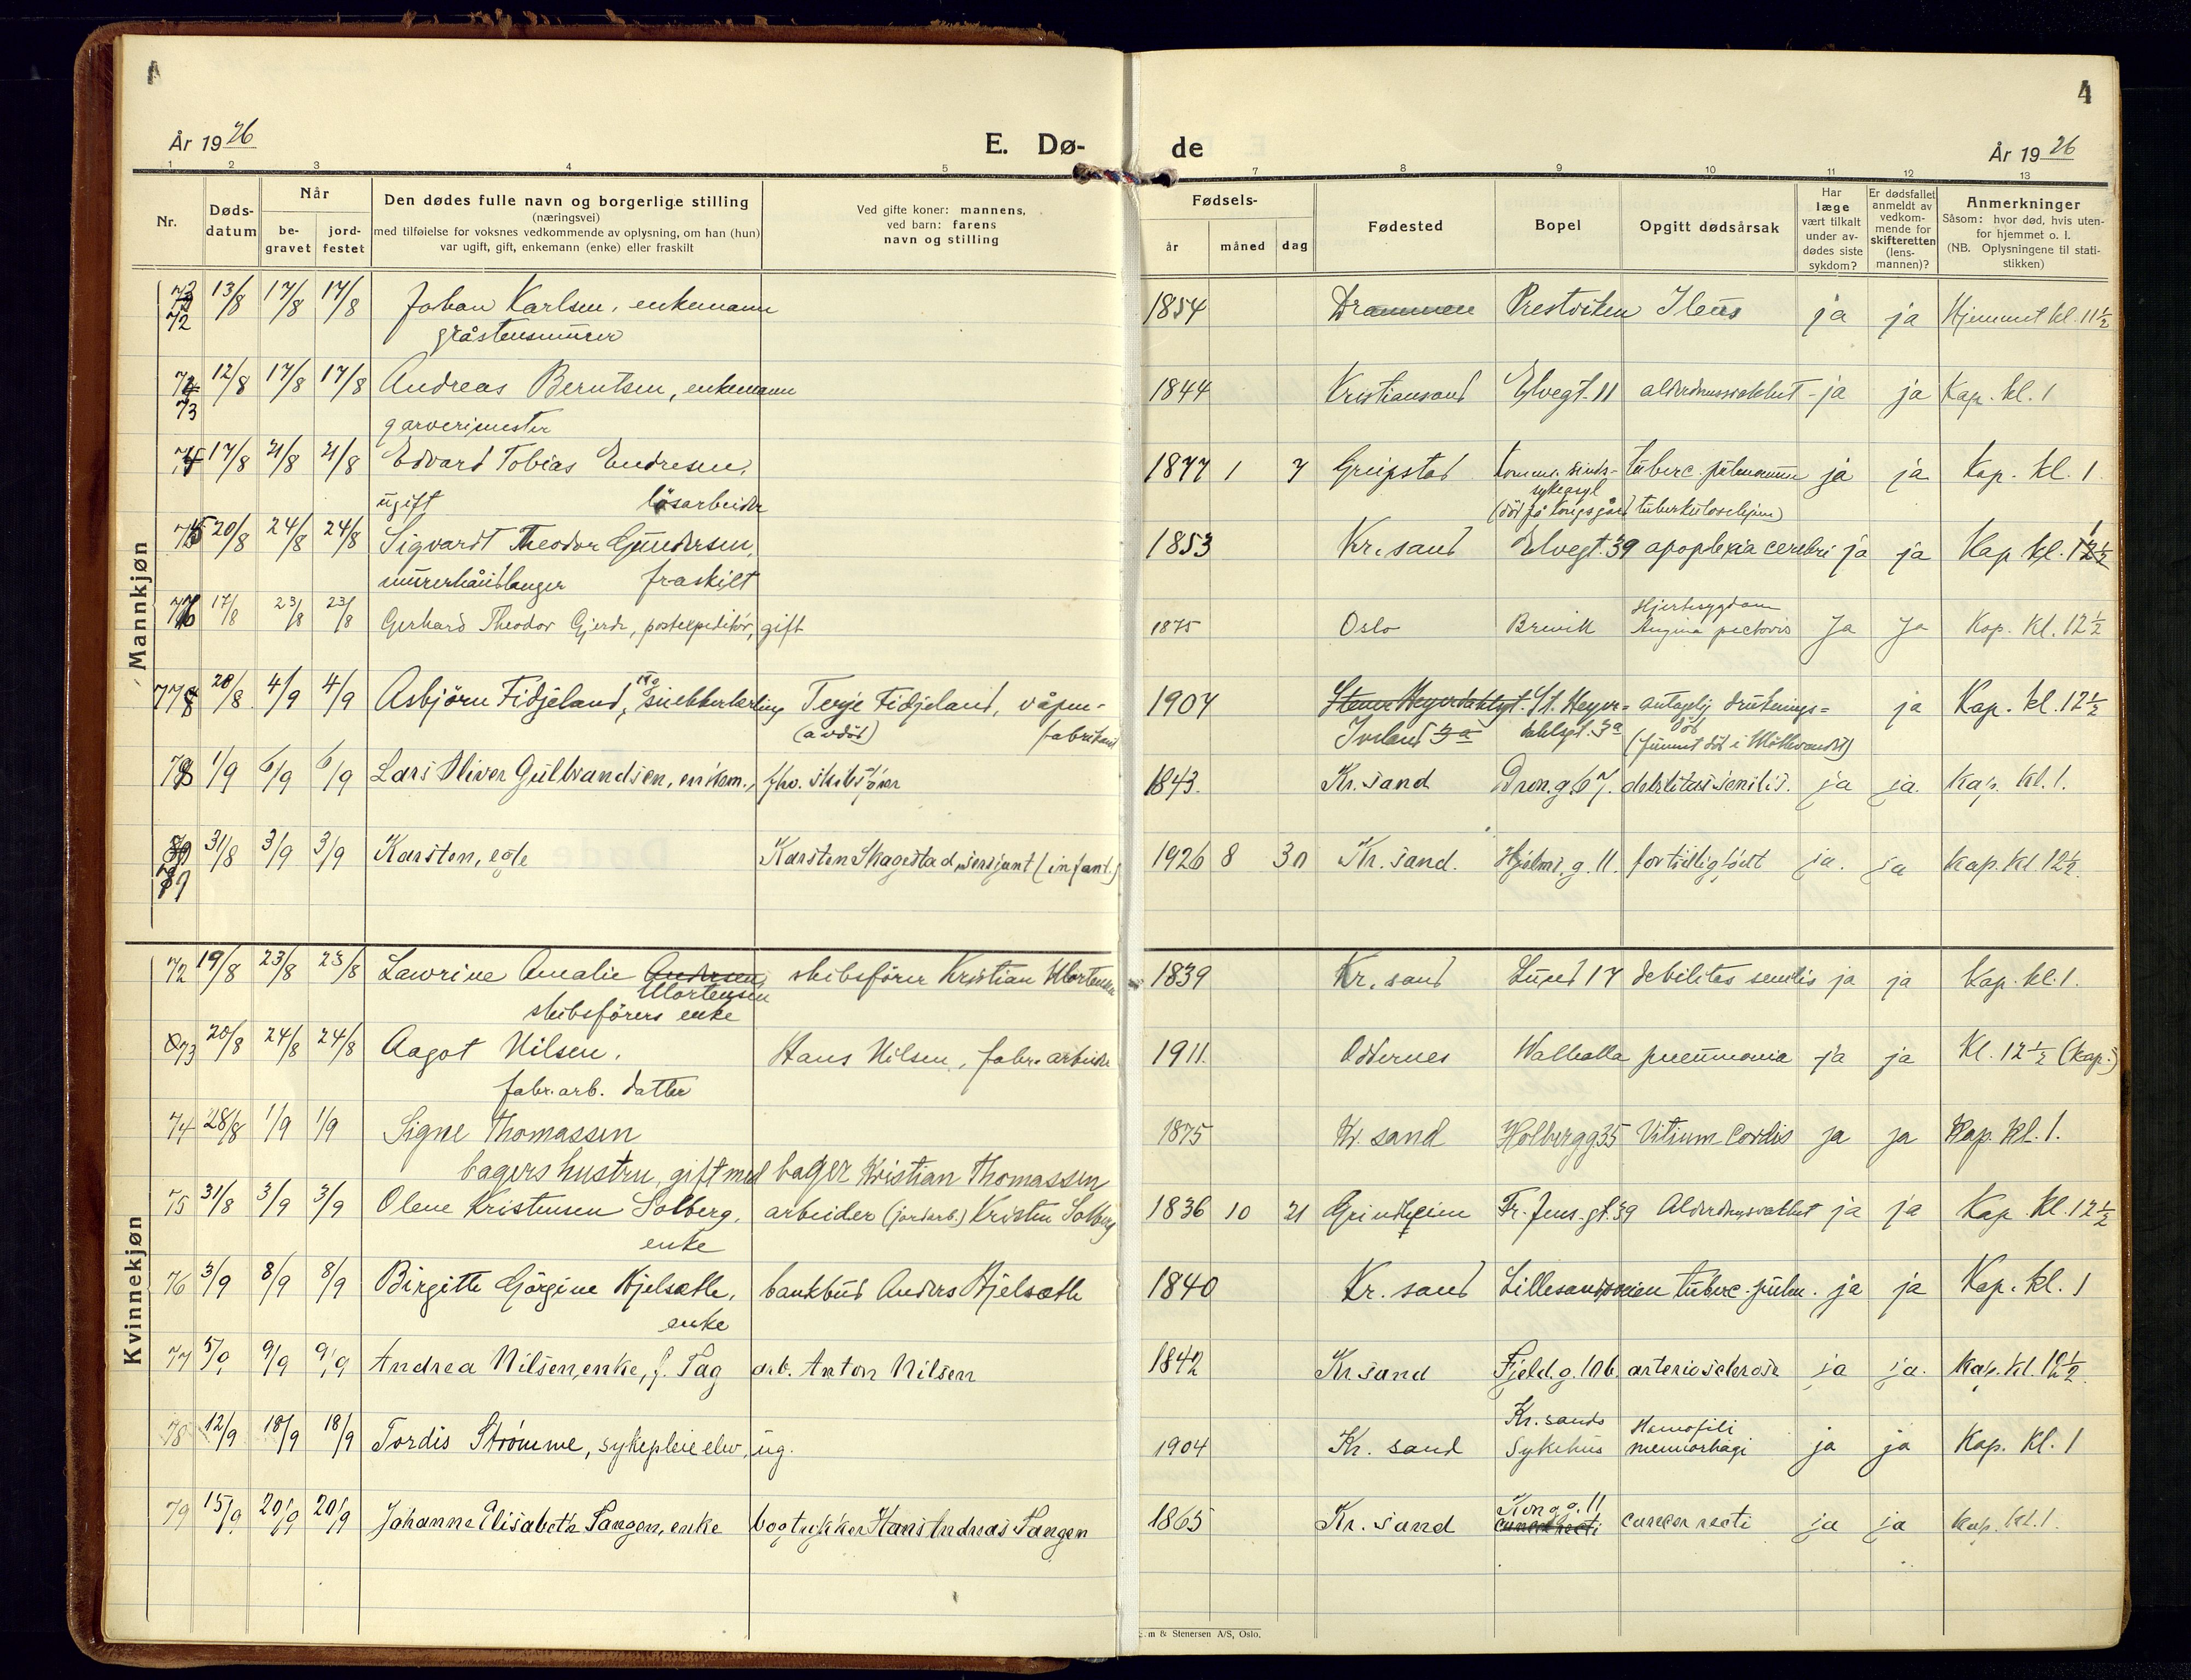 4
År 1926
E. Dø-
de
År 1926
1 2 3 4 5 7 8 9 10 11 12 13
Nr.
Døds-
datum
Når
be-
gravet
jord-
festet
Den dødes fulle navn og borgerlige stilling
(næringsvei)
med tilføielse for voksnes vedkommende av oplysning, om han (hun)
var ugift, gift, enkemann (enke) eller fraskilt
Ved gifte koner: mannens,
ved barn: farens
navn og stilling
Fødsels-
år måned dag
Fødested
Bopel
Opgitt dødsårsak
Har
læge
vært tilkalt
under av-
dødes siste
sykdom?
Er dødsfallet
anmeldt av
vedkom-
mende for
skifteretten
(lens-
mannen)?
Anmerkninger
Såsom: hvor død, hvis uten-
for hjemmet o. l.
(NB. Oplysningene til stati-
stikken)
Mannkjøn
72 13/8 17/8 17/8 Johan Karlsen, enkemann 1854 Drammen Prestviken Ileus ja ja Hjemmet kl. 11½
gråstensmurer
73 12/8 17/8 17/8 Andreas Berntsen, enkemann 1844 Kristiansand Elvegt. 11 alderdomssvakhet ja ja Kap. kl. 1
garverimester
17/8 21/8 21/8 Edvard Tobias Endresen, 1877 1 7 Greipstad tuberc. pulmonum ja ja Kap. kl. 1
ugift løsarbeider
(død på Kongsgård tuberkulosehjem)
75 20/8 24/8 24/8 Sigvardt Theodor Gundersen, 1853 Kr.sand Elvegt. 39 apoplexia cerebri ja ja Kap kl. 1
murerhåndlanger fraskilt
76 17/8 23/8 23/8 Gerhard Theodor Gjerde, postexpeditør, gift 1875 Oslo Brevik Hjertesygdom Ja Ja Kap. Kl. 12½
Angina pectoris
77 28/8 4/9 4/9 Asbjörn Fidjeland, snekkerlærling Terje Fidjeland, våpen- 1904 St. Heyer- antagelig druknings= ja Kap. kl. 12½
(avdöd) fabrikant Iveland dahlsgt. 3a död
(funnet död i
78 1/9 6/9 6/9 Lars Oliver Gulbrandsen, enkem., fhv. skibsfører 1843. Kr. sand Dron.g 67. debilitas senilis. ja ja. Kap. kl. 1.
79 31/8 3/9 3/9 Karsten, egte Karsten Skagestad, sersjant (infant.) 1926 8 30 Kr. sand. g. 11. for tidlig født ja. ja Kap. kl. 12½.
Kvinnekjøn
72 19/8 23/8 23/8 Lawrine Amalie Andersen, skibsförer Kristian Mortensen 1839 Kr. sand Lund 17 debilitas senilis ja ja Kap. kl. 1.
Mortensen
skibsförers enke
73 20/8 24/8 24/8 Aagot Nilsen, Hans Nilsen, fabr. arbeider 1911. Oddernes Walhalla pneumonia ja ja Kl. 12½ (kap.)
fabr. arb. datter
74 28/8 1/9 1/9 Signe Thomassen 1875 Kr. sand Holbergg 35 Vitium Cordis ja ja Kap. kl. 1.
bagers hustru, gift med bager Kristian Thomassen
75 31/8 3/9 3/9 Olene Kristensen Solberg, arbeider (jordarb.) Kristen Solberg 1836 10 21 Grindheim Fr. Jens. gt. 39 Alderdomssvakhet ja ja Kap. Kl. 12½
enke
76 3/9 8/9 8/9 Birgitte Görgine Hjelsæth, bankbud Anders Hjelsæth 1840 Kr. sand Lillesandsveien tuberc. pulm. ja ja Kap. kl. 1
enke
77 5/9 9/9 9/9 Andrea Nilsen, enke, f. Tag arb. Anton Nilsen 1842 Kr sand Fjeld. g. 10b. arteriosclerose ja ja. Kap. kl. 12½
78 12/9 18/9 18/9 Tordis Strömme, sykepleie elev, ug. 1904 Kr. sand Kr. sands Hemofili ja ja Kap. Kl. 1
Sykehus mennorhagi
79 15/9 20/9 20/9 Johanne Elisabeth Tangen, enke bogtrykker Hans Andreas Tangen 1865 Kr. sand Kong. g. 11 cancer recti ja ja Kap. kl. 1.
cancer recti
m & Stenersen A/S, Oslo.